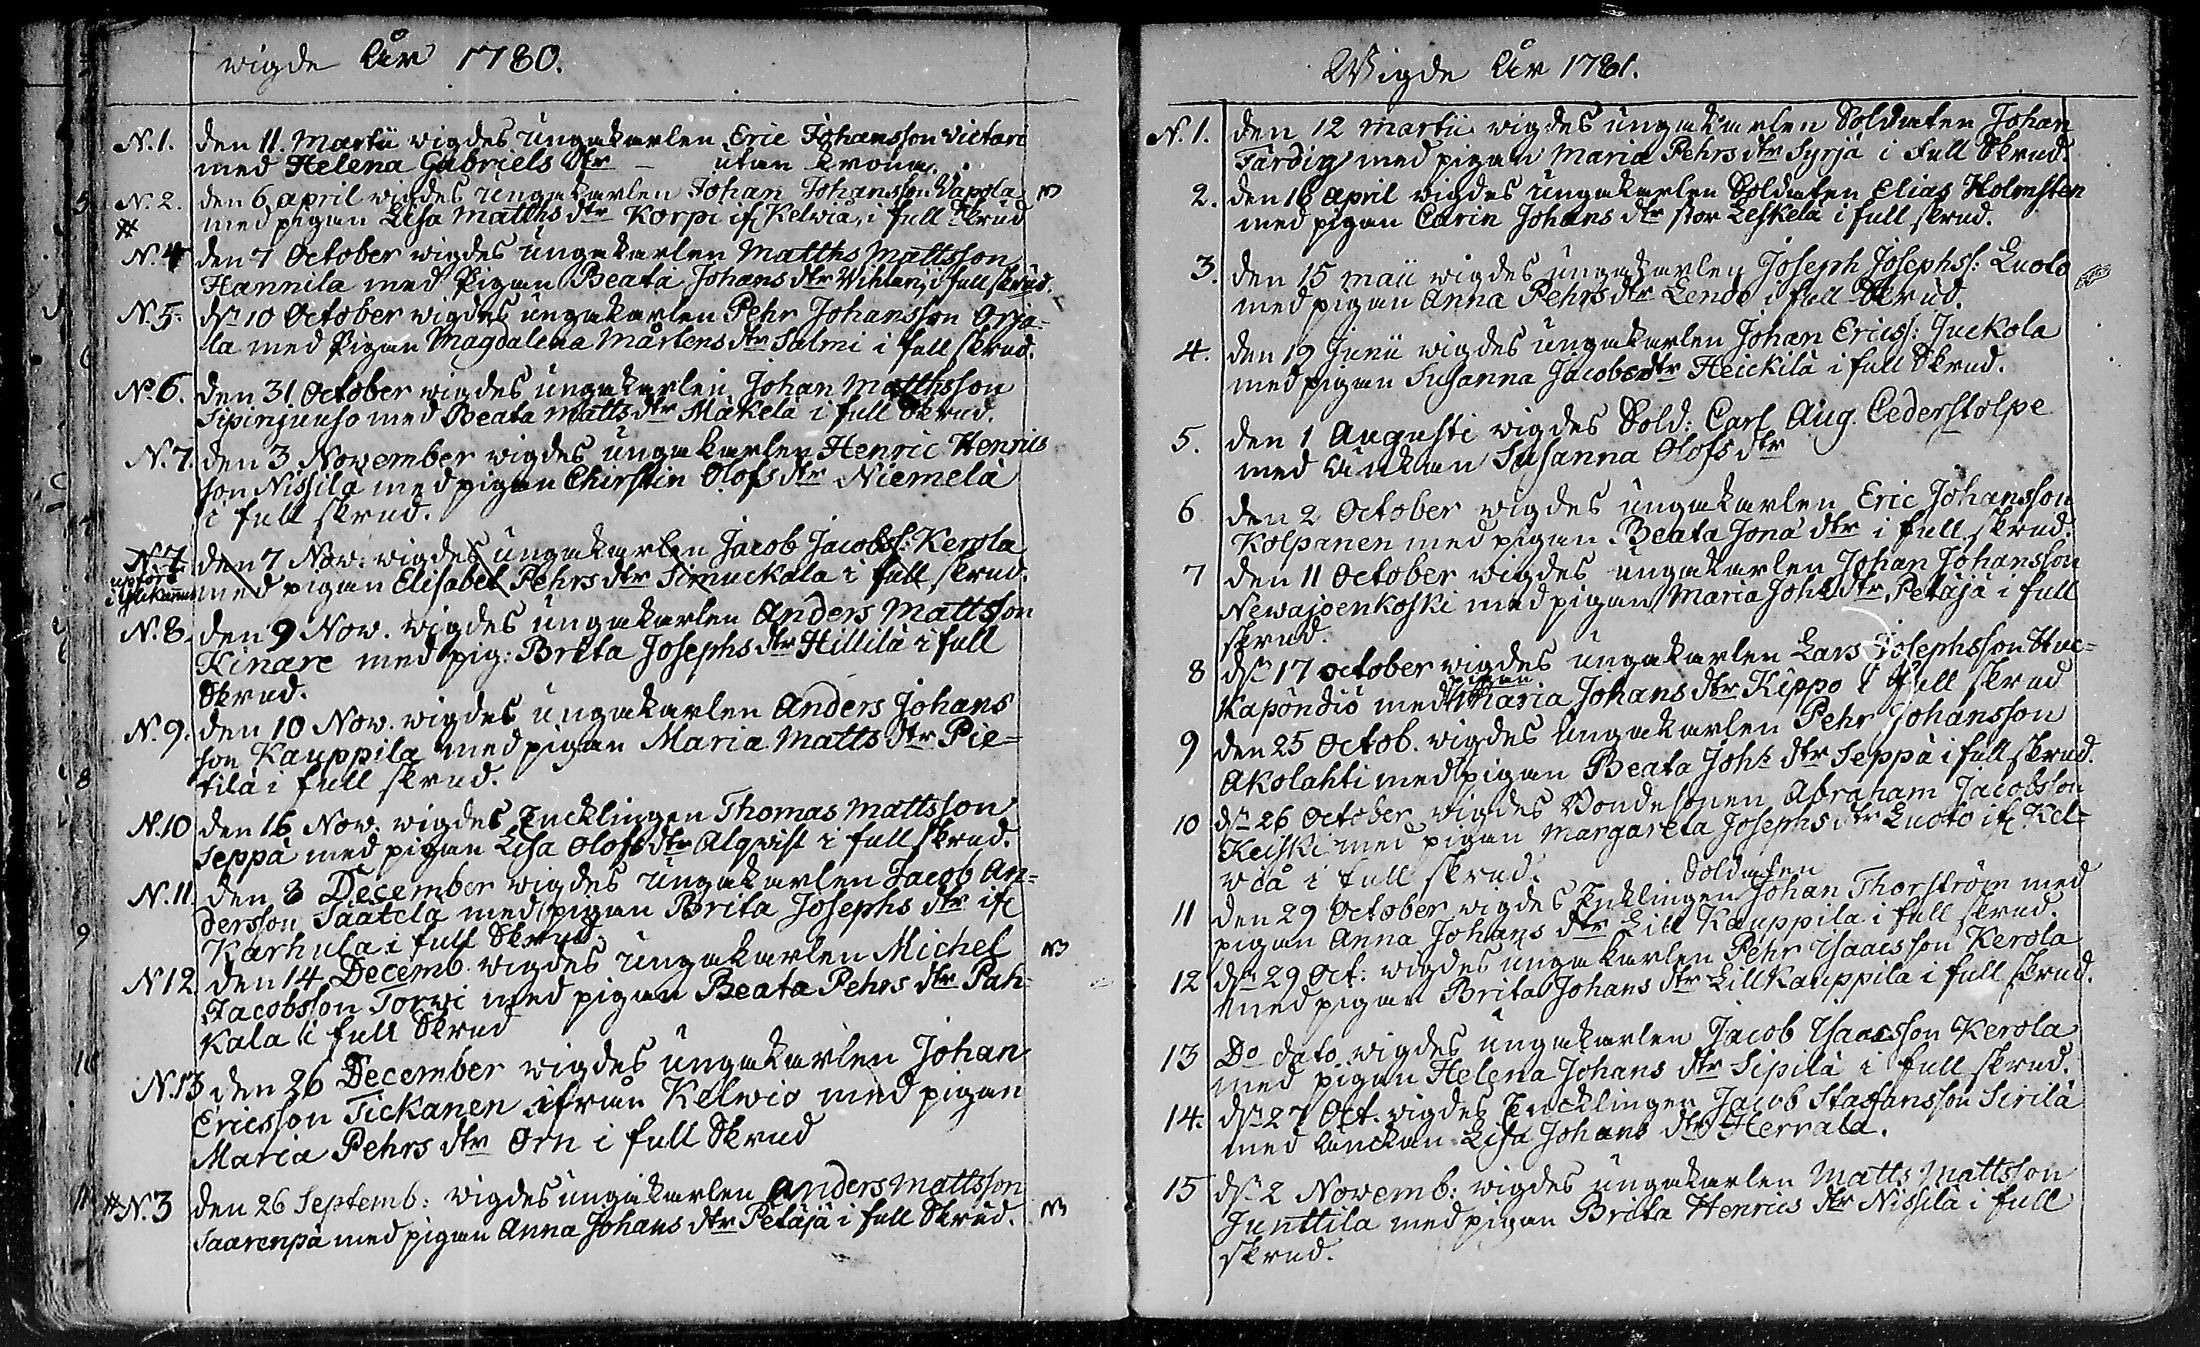 wigde År 1780.
N.1. den 11. Martii wigdes ungakarlen Eric Johansson Victari
med Helena Gabriels dtr – utan krona.
N.2. den 6 april wigdes ungakarlen Johan Johansson Wapola
# med pigan Lisa Matths dtr Korpi if. Kelwiå, i full Skrud
N.4 den 7 October wigdes ungakarlen Matths Mattsson
Hannila med Pigan Beata Johans dtr i full skrud.
N.5. dn 10 October wigdes ungakarlen Pehr Johansson Orja-
la med Pigan Magdalena Mårtens dtr Salmi i full skrud.
No 6. den 31 October wigdes ungakarlen Johan Matthsson
med Beata Matts dtr Mäkelä i full Skrud.
N.7. den 3 November wigdes ungakarlen Henric Henrics
son Nissilä med pigan Chirstin Olofs dtr Niemelä
i full skrud.
N.7. den 7 Nov: wigdes ungakarlen Jacob Jacobss: Kerola
upförd med pigan Elisabet Pehrs dtr Simuckala i full skrud.
N.8. den 9 Nov. wigdes ungakarlen Anders Mattsson
Kinare med pig: Brita Josephs dtr Hillilä i full
Skrud.
N.9. den 10 Nov. wigdes ungakarlen Anders Johans
son Kauppila med pigan Maria Matts dtr Pie-
tilä i full skrud.
N.10 den 16 Nov. wigdes Encklingen Thomas Mattsson
Seppä med pigan Lisa Olofs dtr Alqvist i full skrud.
N.11. den 8 December wigdes ungakarlen Jacob An-
dersson Säätelä med pigan Brita Josephs dtr if.
Karhula i full Skrud.
N12 den 14 Decemb. wigdes ungakarlen Michel
Jacobsson Torwi med pigan Beata Pehrs dtr Pah-
kala i full Skrud
N.13 den 26 December wigdes ungakarlen Johan
Ericsson Tickanen ifrån Kelwio med pigan
Maria Pehrs dtr Orn i full Skrud
#N.3 den 26 Septemb: wigdes ungakarlen Anders Mattsson
Saarenpä med pigan Anna Johans dtr Petäjä i full Skrud.
Wigde År 1781.
N.1. den 12 Martii wigdes ungakarlen Soldaten Johan
Färdig med pigan Maria Pehrs dtr Syrjä i full Skrud.
2. den 16 april wigdes ungakarlen Soldaten Elias Holmsten
med pigan Carin Johans dtr stor Leskelä i full skrud.
3. den 15 maii wigdes ungakarlen Joseph Josephss: Luoto
med pigan Anna Pehrs dtr Lende i full Skrud.
4. den 19 Junii wigdes ungakarlen Johan Ericss: Juckola
med pigan Susanna Jacobs dtr Heickilä i full Skrud.
5. den 1 Augusti wigdes Sold: Carl Aug. Cederstolpe
med änkan Susanna Olofs dtr
6 den 2 October wigdes ungakarlen Eric Johansson
Kolpanen med pigan Beata Jona dtr i full skrud.
7 den 11 October wigdes ungakarlen Johan Johansson
Newajoenkoski med pigan Maria Joh: dtr Petäjä i full
skrud.
8 dn 17 october wigdes ungakarlen Lars Josephsson Huc-
pigan
kapöndiö med Maria Johans dtr Kippo i full skrud
9 den 25 Octob. wigdes ungakarlen Pehr Johansson
Akolahti med pigan Beata Johs dtr Seppä i full skrud.
10 dn 26 October wigdes Bondesonen Abraham Jacobsson
Keiski med pigan Margareta Josephs dtr Luoto if. Kel-
wiå i full skrud.
Soldaten
11 den 29 October wigdes Enklingen Johan Thorström med
pigan Anna Johans dtr Lill Kauppila i full skrud.
12 dn 29 Oct: wigdes ungakarlen Pehr Ysaacsson Kerola
med pigan Brita Johans dtr Lillkauppila i full skrud.
13 Do dato wigdes ungakarlen Jacob Ysaacsson Kerola
med pigan Helena Johans dtr Sipilä i full skrud.
14. dn 27 Oct. wigdes Encklingen Jacob Stafansson Sirilä
med änckan Lisa Johans dtr Herrala.
15 dn 2 Novemb: wigdes ungakarlen Matts Mattsson
Junttila med pigan Brita Henrics dtr Nissilä i full
skrud.